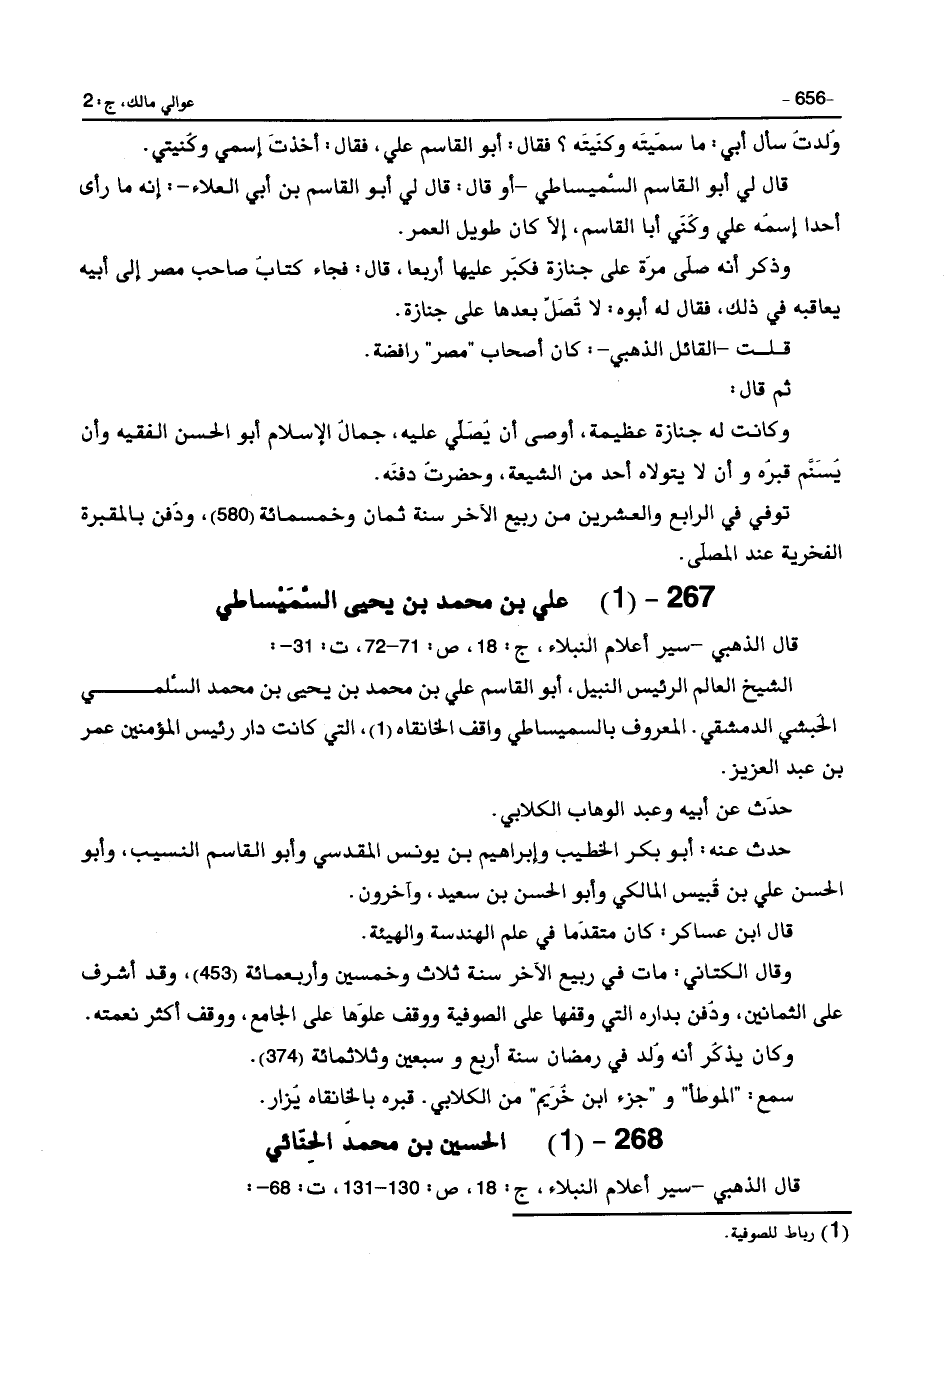 -656-
عوالي مالك، ج: 2
وُلدتُ سأل أبي: ما سمّيتَه وكنّيتَه ؟ فقال: أبو القاسم علي، فقال: أخذتَ إسمي وكُنيتي.
قال لي أبو القاسم السُّميساطي -أو قال: قال لي أبو القاسم بن أبي العلاء-: إنه ما رأى
أحدا إسمُه علي وكُنّي أبا القاسم، إلاّ كان طويل العمر.
وذكر أنه صلّى مرّة على جنازة فكبّر عليها أربعا، قال: فجاء كتابُ صاحب مصر إلى أبيه
يعاقبه في ذلك، فقال له أبوه: لا تُصلّ بعدها على جنازة.
قلت -القائل الذهبي-: كان أصحاب "مصر" رافضة.
ثم قال:
وكانت له جنازة عظيمة، أوصى أن يُصلّي عليه، جمالُ الإسلام أبو الحسن الفقيه وأن
يُسَنَّم قبرُه و أن لا يتولاه أحد من الشيعة، وحضرتُ دفنَه.
توفي في الرابع والعشرين من ربيع الآخر سنة ثمان وخمسمائة (580)، ودُفن بالمقبرة
الفخرية عند المصلّى.
267 - (1) علي بن محمد بن يحيى السُّمَيْساطي
قال الذهبي -سير أعلام النبلاء، ج: 18، ص: 71-72، ت: 31-:
الشيخ العالم الرئيس النبيل، أبو القاسم علي بن محمد بن يحيى بن محمد السُّلمي
الحَبشي الدمشقي. المعروف بالسميساطي واقف الخانقاه (1)، التي كانت دار رئيس المؤمنين عمر
بن عبد العزيز.
حدّث عن أبيه وعبد الوهاب الكلابي.
حدث عنه: أبو بكر الخطيب وإبراهيم بن يونس المقدسي وأبو القاسم النسيب، وأبو
الحسن علي بن قُبيس المالكي وأبو الحسن بن سعيد، وآخرون.
قال ابن عساكر: كان متقدّما في علم الهندسة والهيئة.
وقال الكتاني: مات في ربيع الآخر سنة ثلاث وخمسين وأربعمائة (453)، وقد أشرف
على الثمانين، ودُفن بداره التي وقفها على الصوفية ووقف علوّها على الجامع، ووقف أكثر نعمته.
وكان يذكُر أنه وُلد في رمضان سنة أربع و سبعين وثلاثمائة (374).
سمع: "الموطأ" و "جزء ابن خُرَيم" من الكلابي. قبره بالخانقاه يُزار.
268 - (1) الحسين بن محمد الحِنّائي
قال الذهبي -سير أعلام النبلاء، ج: 18، ص: 130-131، ت: 68-:
(1) رباط للصوفية.